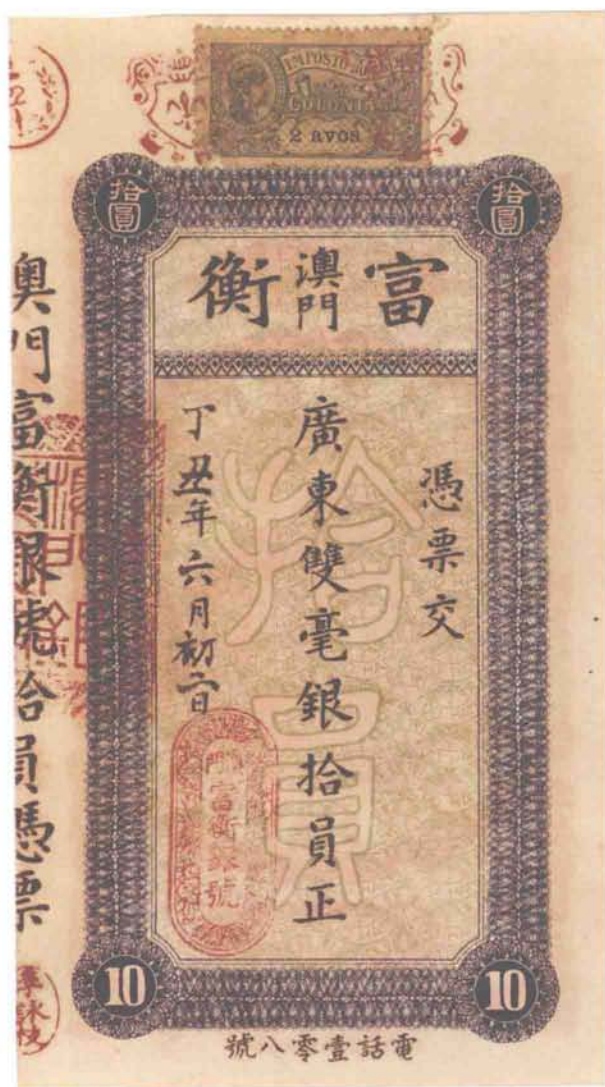 IMPOSTO
COLONIAL
2 avos
拾圓
拾圓
富
澳門
衡
憑票交
廣東雙毫銀拾員正
丁丑年六月初二日
拾員
富衡銀號
澳門富衡銀號拾員憑票
10
10
電話壹零八號